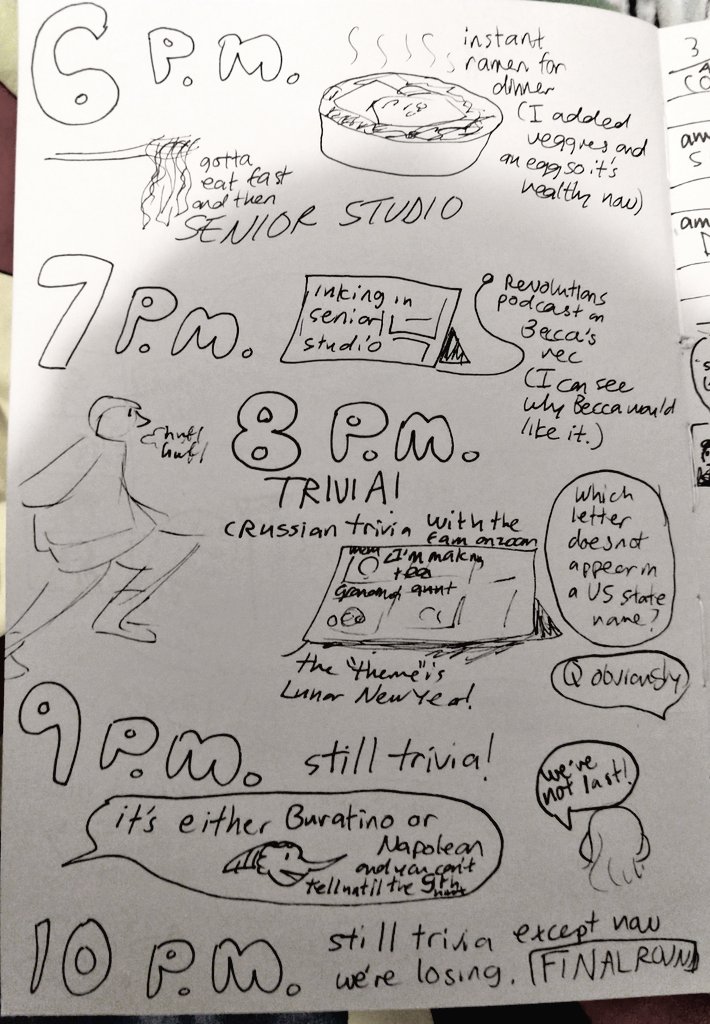 6 P.M.
instant
ramen for
dinner
(I added
veggies and
an egg so it's
healthy now)
gotta
eat fast
and then
SENIOR STUDIO
7 P.M.
inking in
senior
studio
Revolutions
podcast on
Becca's
rec
(I can see
why Becca would
like it.)
huff
huff
8 P.M.
TRIVIA!
(Russian trivia with the
fam on zoom
mom
I'm making
tea
grandma
aunt
Which
letter
does not
appear in
a US state
name?
Q obviously
the "theme" is
Lunar New Year!
9 P.M. still trivia!
we've
not last!
it's either Buratino or
Napolean
and you can't
tell until the 9th
10 P.M.
still trivia except now
we're losing. FINAL ROUND
3
am
S
am